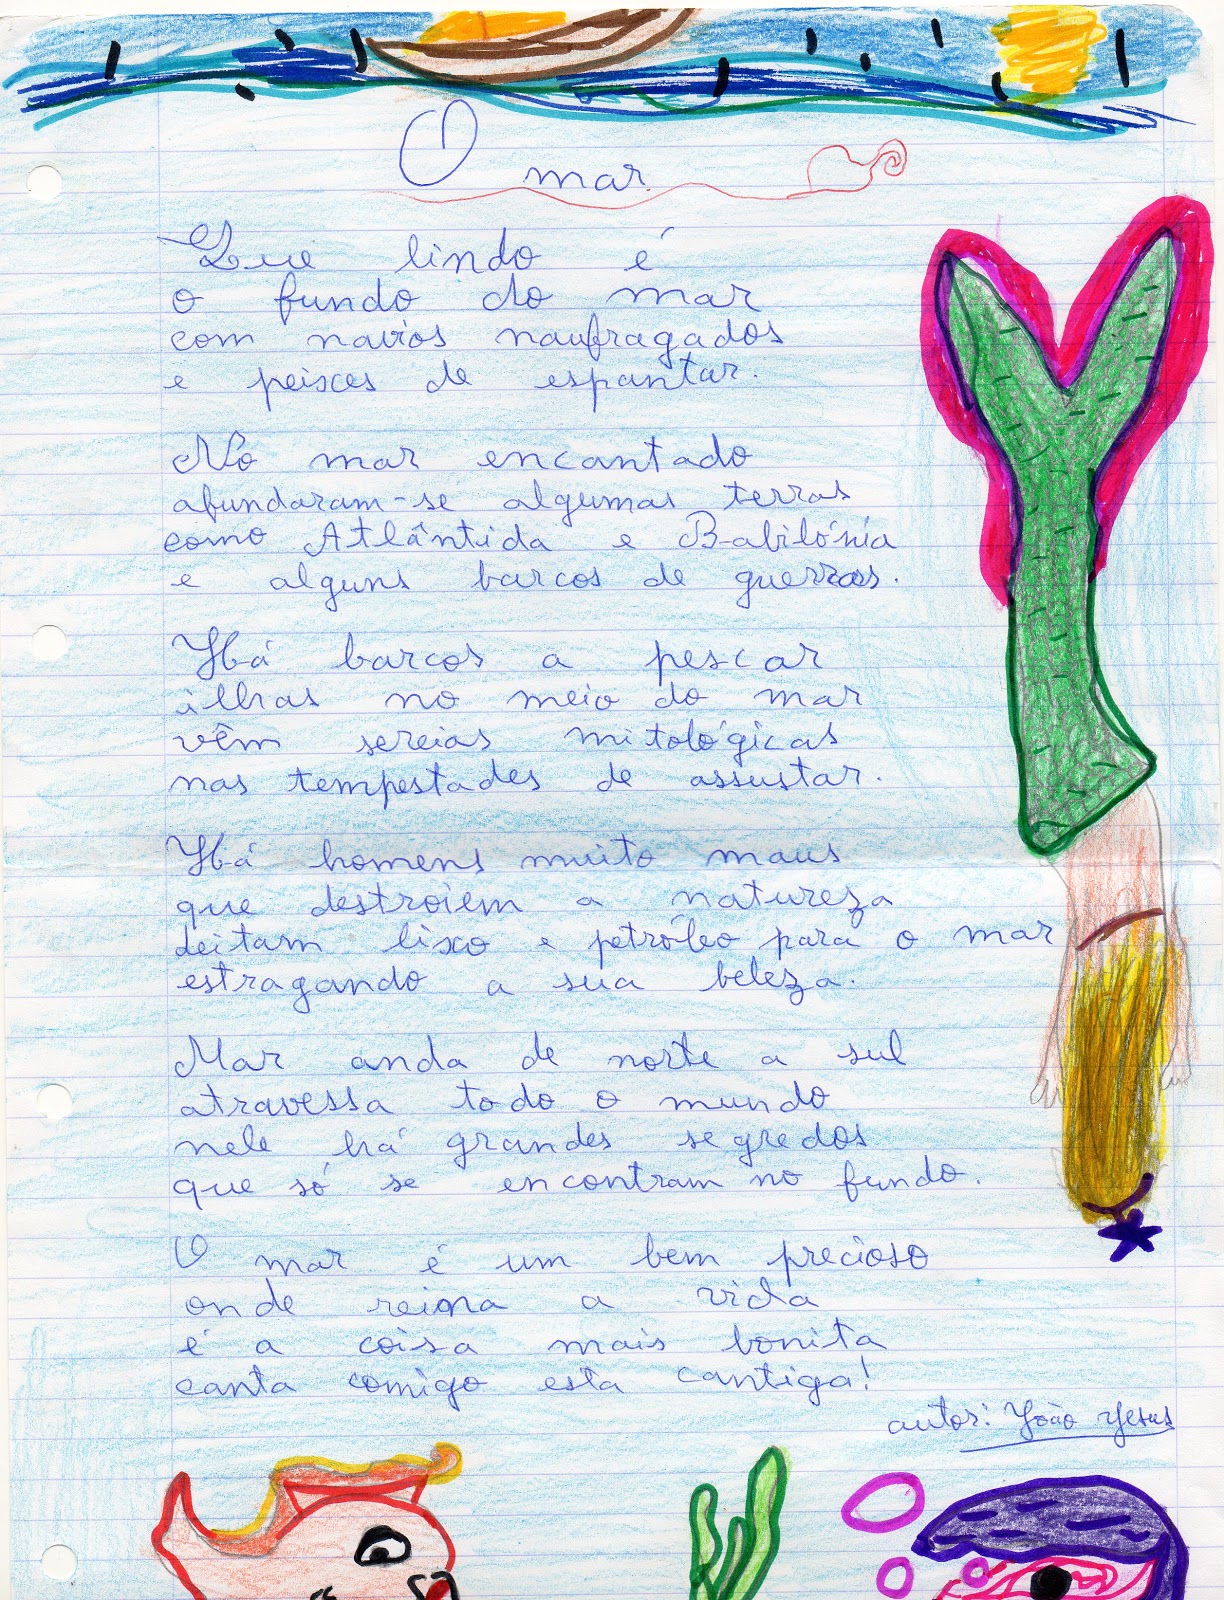 O mar
Que lindo é
o fundo do mar
com navios naufragados
e peixes de espantar.
No mar encantado
afundaram-se algumas terras
como Atlântida e Babilónia
e alguns barcos de guerras.
Há barcos a pescar
ilhas no meio do mar
vêm sereias mitológicas
nas tempestades de assustar.
Há homens muito maus
que destroiem a natureza
deitam lixo e petróleo para o mar
estragando a sua beleza.
Mar anda de norte a sul
atravessa todo o mundo
nele há grandes segredos
que só se encontram no fundo.
O mar é um bem precioso
onde reina a vida
é a coisa mais bonita
canta comigo esta cantiga!
autor: João Jesus